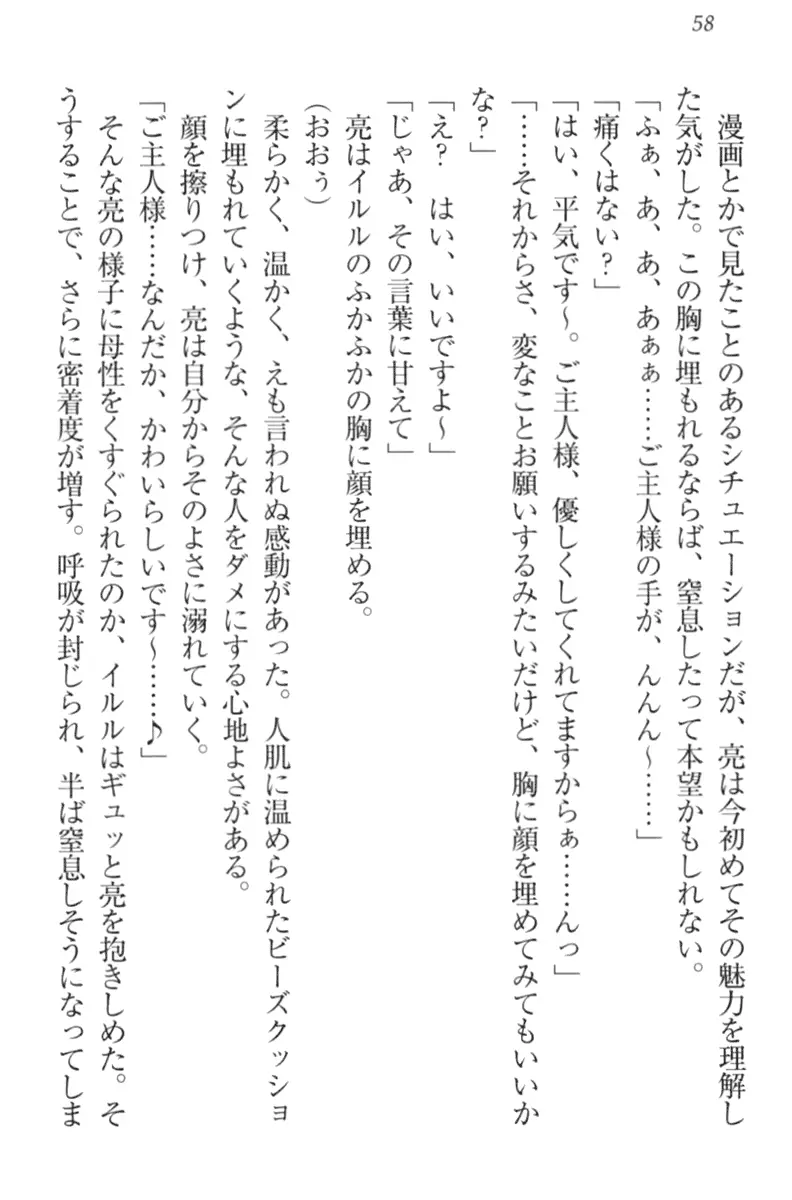 58
漫画とかで見たことのあるシチュエーションだが、亮は今初めてその魅力を理解し
た気がした。この胸に埋もれるならば、窒息したって本望かもしれない。
「ふぁ、あ、あ、あぁぁ……ご主人様の手が、んんん～……」
「痛くはない?」
「はい、平気です～。ご主人様、優しくしてくれてますからぁ……んっ」
「……それからさ、変なことお願いするみたいだけど、胸に顔を埋めてみてもいいか
な?」
「え?　はい、いいですよ～」
「じゃあ、その言葉に甘えて」
亮はイルルのふかふかの胸に顔を埋める。
(おおぅ)
柔らかく、温かく、えも言われぬ感動があった。人肌に温められたビーズクッショ
ンに埋もれていくような、そんな人をダメにする心地よさがある。
顔を擦りつけ、亮は自分からそのよさに溺れていく。
「ご主人様……なんだか、かわいらしいです～……♪」
そんな亮の様子に母性をくすぐられたのか、イルルはギュッと亮を抱きしめた。そ
うすることで、さらに密着度が増す。呼吸が封じられ、半ば窒息しそうになってしま